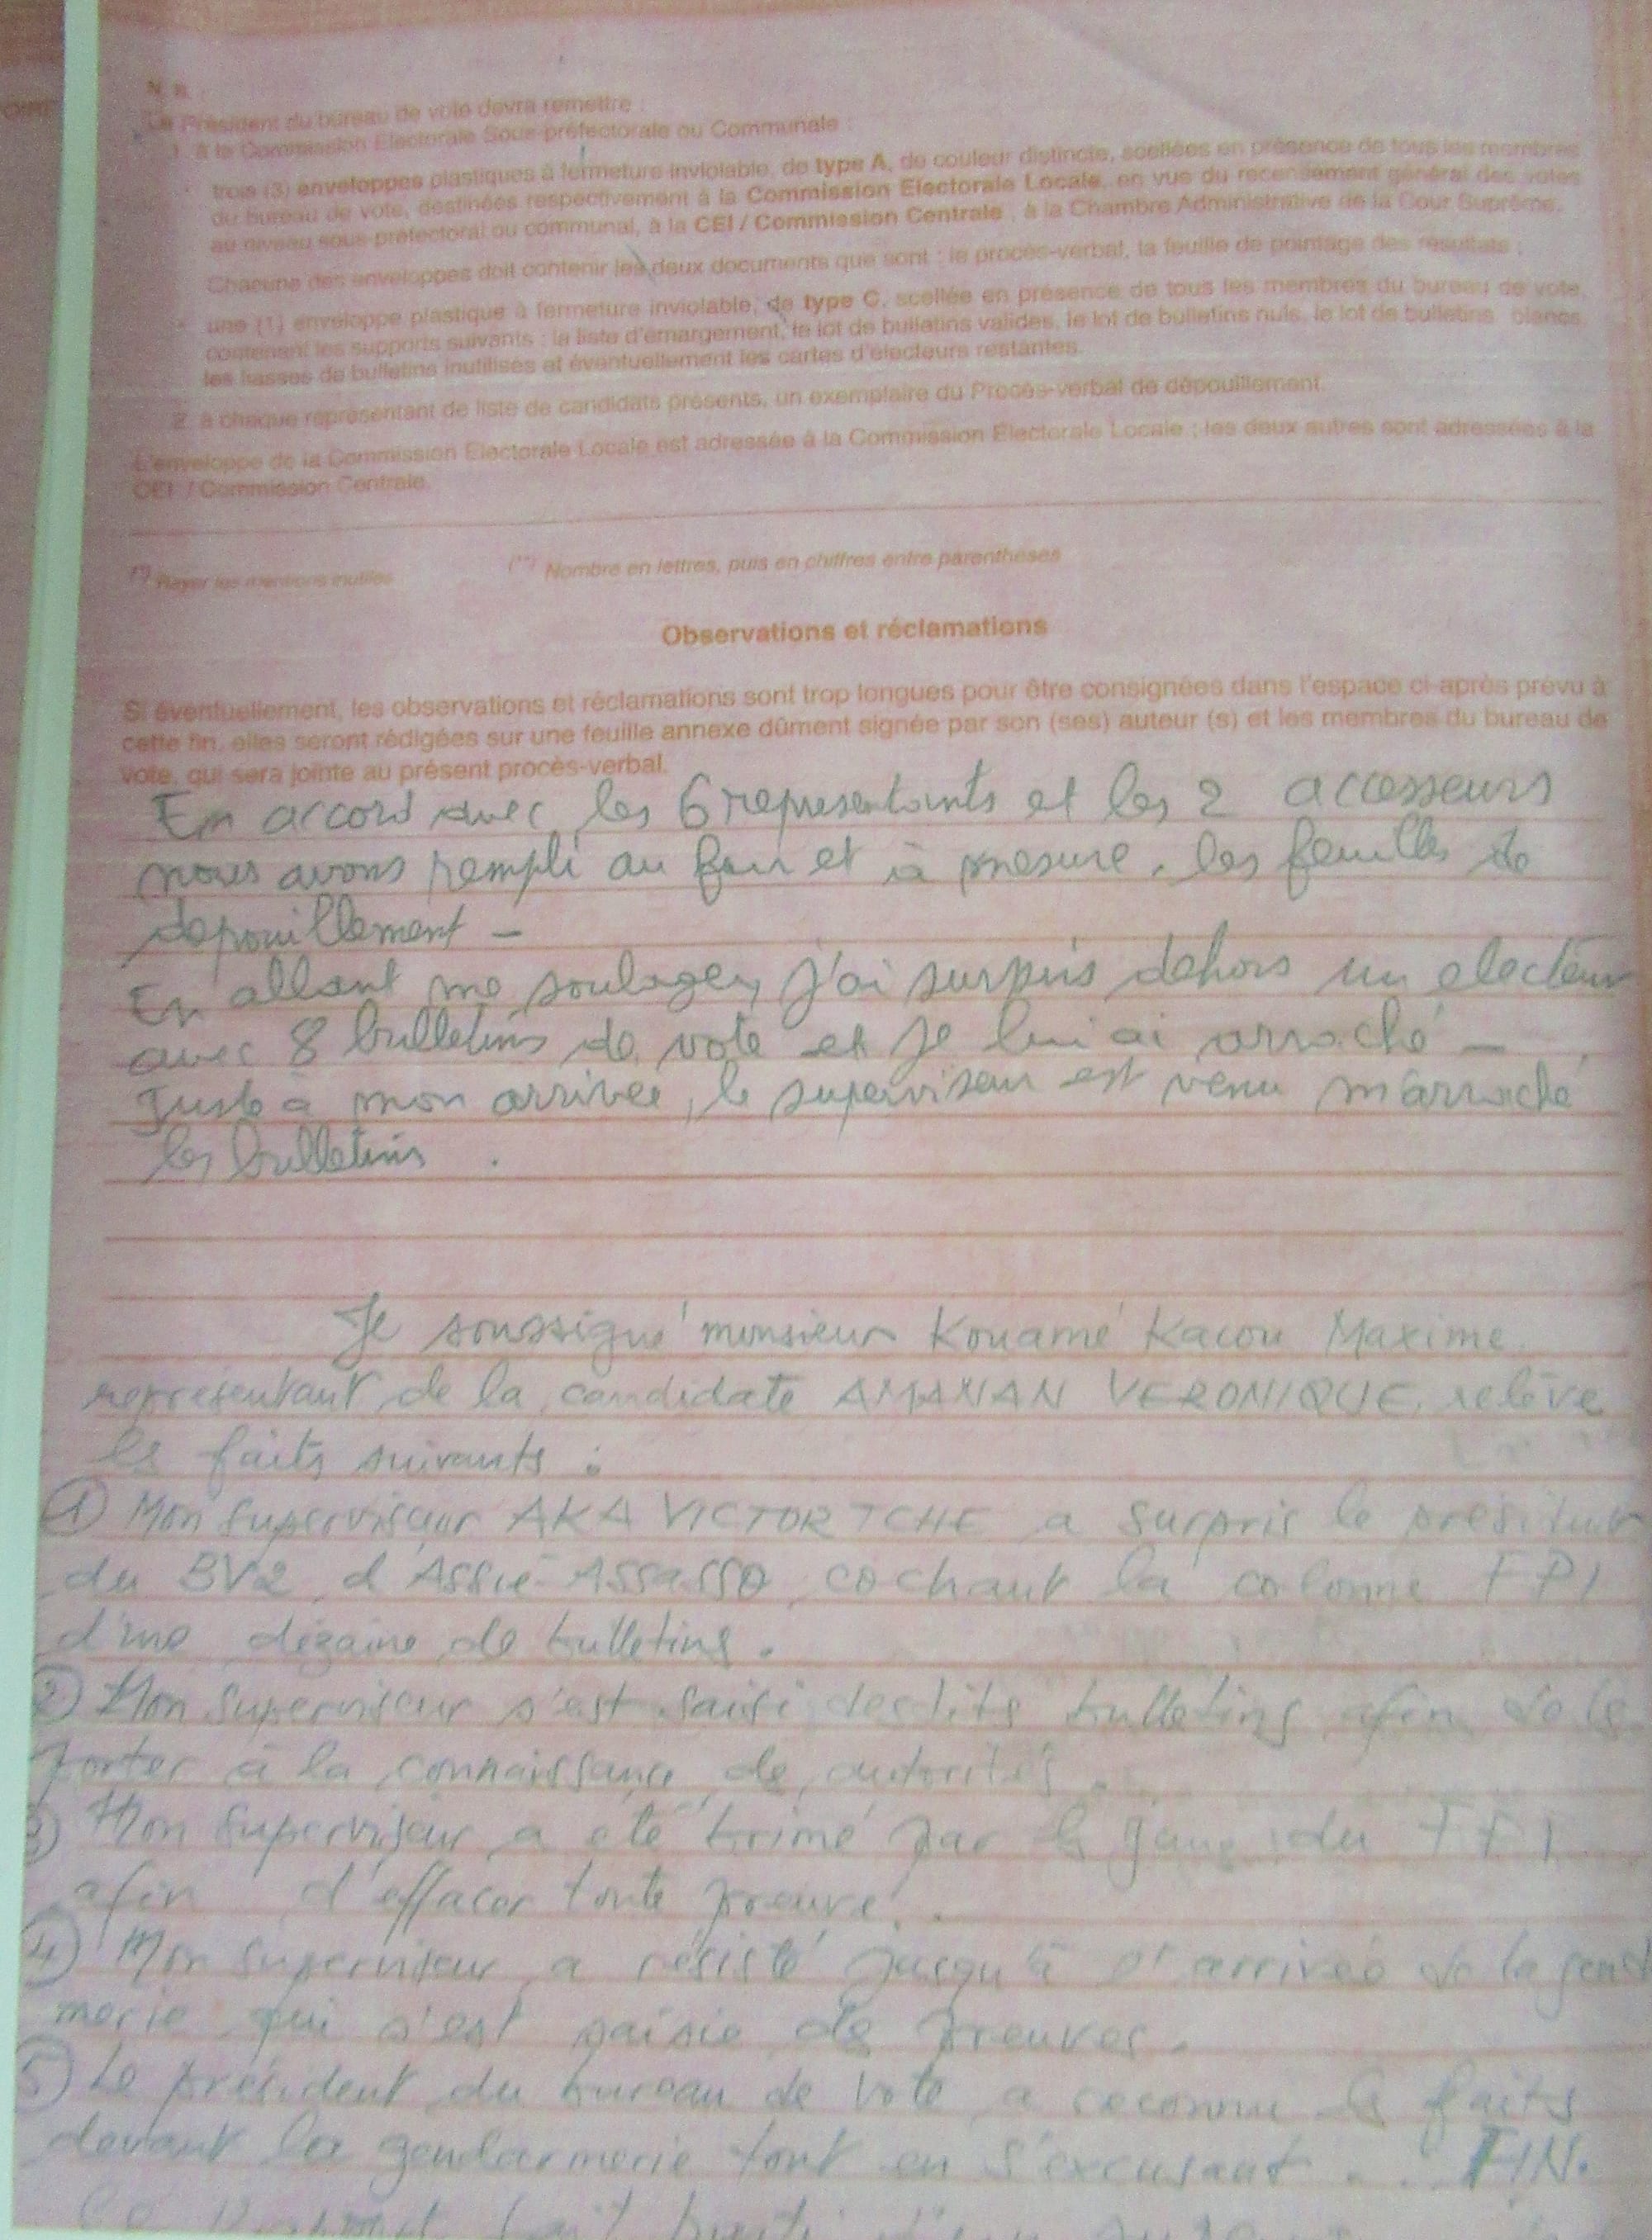 N. B. :
Le Président du bureau de vote devra remettre :
1. à la Commission Electorale Sous-préfectorale ou Communale :
trois (3) enveloppes plastiques à fermeture inviolable, de type A, de couleur distincte, scellées en présence de tous les membres
du bureau de vote, destinées respectivement à la Commission Electorale Locale, en vue du recensement général des votes
au niveau sous-préfectoral ou communal, à la CEI / Commission Centrale, à la Chambre Administrative de la Cour Suprême.
Chacune des enveloppes doit contenir les deux documents que sont : le procès-verbal, la feuille de pointage des résultats ;
- une (1) enveloppe plastique à fermeture inviolable, de type C, scellée en présence de tous les membres du bureau de vote,
contenant les supports suivants : la liste d'émargement, le lot de bulletins valides, le lot de bulletins nuls, le lot de bulletins blancs,
les liasses de bulletins inutilisés et éventuellement les cartes d'électeurs restantes.
2. à chaque représentant de liste de candidats présents, un exemplaire du Procès-verbal de dépouillement.
L'enveloppe de la Commission Electorale Locale est adressée à la Commission Electorale Locale ; les deux autres sont adressées à la
CEI / Commission Centrale.
(*) Rayer les mentions inutiles (**) Nombre en lettres, puis en chiffres entre parenthèses
Observations et réclamations
Si éventuellement, les observations et réclamations sont trop longues pour être consignées dans l'espace ci-après prévu à
cette fin, elles seront rédigées sur une feuille annexe dûment signée par son (ses) auteur (s) et les membres du bureau de
vote, qui sera jointe au présent procès-verbal.
En accord avec les 6 representants et les 2 accesseurs
nous avons rempli au fur et à mesure, les feuilles de
depouillement -
En allant me soulager, j'ai surpris dehors un electeur
avec 8 bulletins de vote et je lui ai arraché -
Juste à mon arrivée, le superviseur est venu m'arraché
les bulletins .
Je soussigné monsieur Kouamé Kacou Maxime
representant de la candidate AMANAN VERONIQUE, relève
les faits suivants :
① Mon superviseur AKA VICTOR TCHE a surpris le président
du BV2 d'Assié-Assasso cochant la colonne FPI
d'une dizaine de bulletins.
② Mon superviseur s'est saisi desdits bulletins afin de les
porter à la connaissance de autorités.
③ Mon superviseur a été brimé par le gang du FPI
afin d'effacer toute preuve.
④ Mon superviseur a résisté jusqu'à l'arrivée de la gendar
merie qui s'est saisie de preuves.
⑤ Le président du bureau de vote a reconnu les faits
devant la gendarmerie tout en s'excusant. .. FIN.